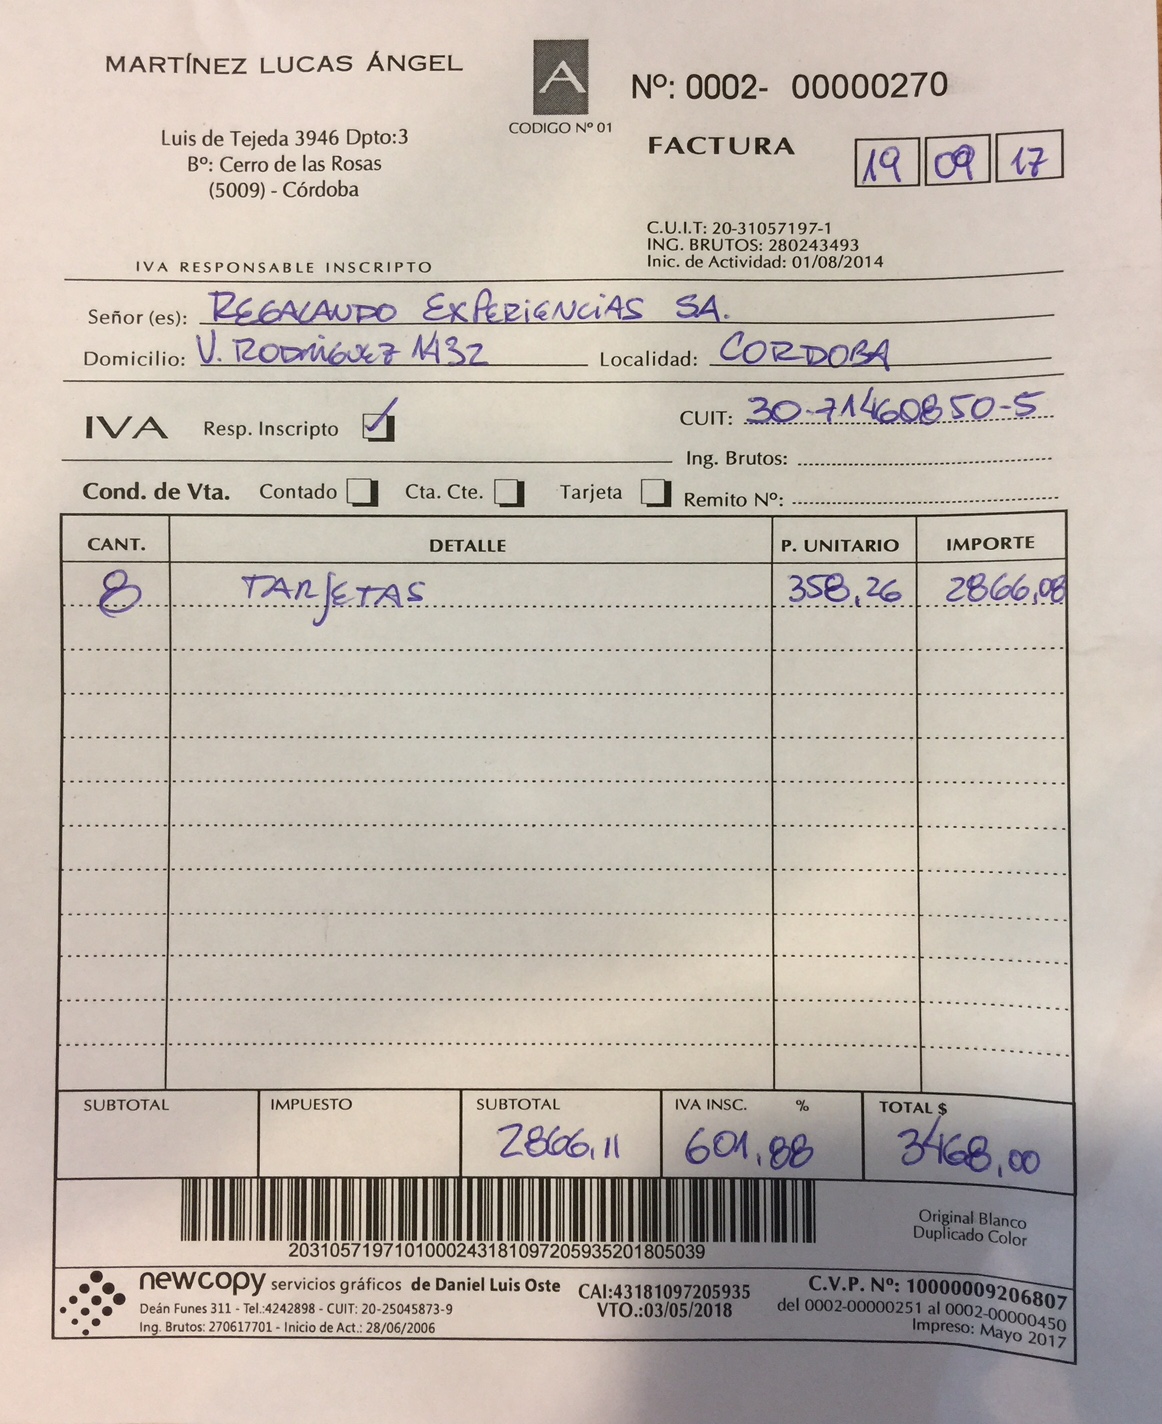 MARTÍNEZ LUCAS ÁNGEL
A
CODIGO Nº 01
Nº: 0002- 00000270
Luis de Tejeda 3946 Dpto:3
Bº: Cerro de las Rosas
(5009) - Córdoba
FACTURA
19 09 17
C.U.I.T: 20-31057197-1
ING. BRUTOS: 280243493
Inic. de Actividad: 01/08/2014
IVA RESPONSABLE INSCRIPTO
Señor (es): REGALANDO EXPERIENCIAS SA.
Domicilio: V. RODRÍGUEZ 1432 Localidad: CORDOBA
IVA Resp. Inscripto CUIT: 30-71460850-5
Ing. Brutos:
Cond. de Vta. Contado Cta. Cte. Tarjeta Remito Nº:
CANT. DETALLE P. UNITARIO IMPORTE
8 TARJETAS 358,26 2866,08
SUBTOTAL IMPUESTO SUBTOTAL IVA INSC. % TOTAL $
2866,11 601,88 3468,00
2031057197101000243181097205935201805039
Original Blanco
Duplicado Color
newcopy servicios gráficos de Daniel Luis Oste
Deán Funes 311 - Tel.:4242898 - CUIT: 20-25045873-9
Ing. Brutos: 270617701 - Inicio de Act.: 28/06/2006
CAI:43181097205935
VTO.:03/05/2018
C.V.P. Nº: 10000009206807
del 0002-00000251 al 0002-00000450
Impreso: Mayo 2017